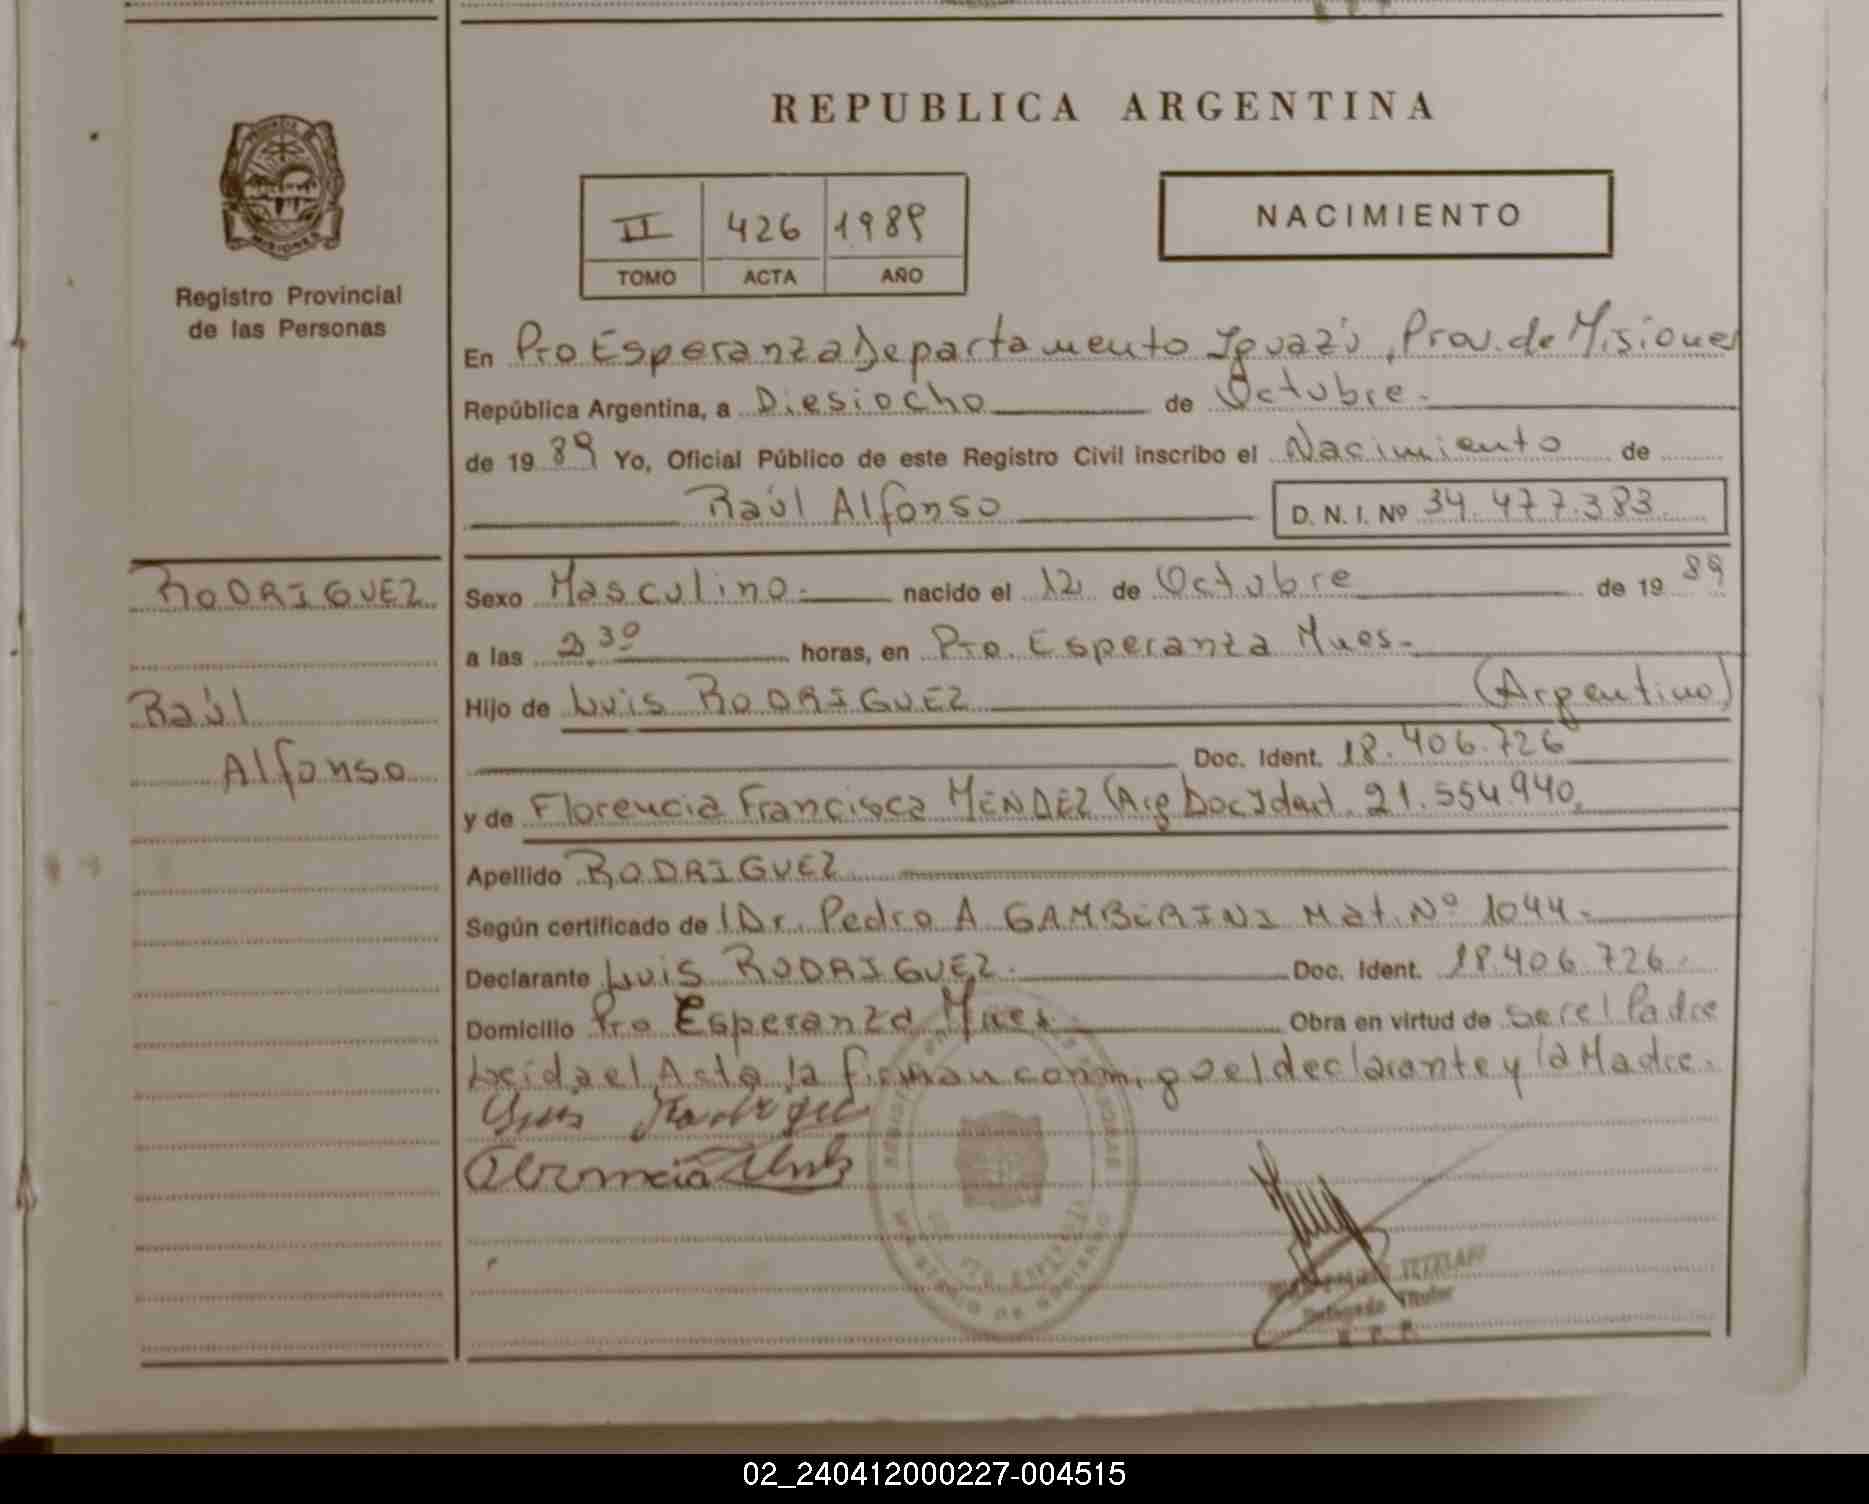 REPUBLICA ARGENTINA
PROVINCIA DE
MISIONES
Registro Provincial
de las Personas
II 426 1989
TOMO ACTA AÑO
NACIMIENTO
En Pto Esperanza Departamento Iguazú, Prov. de Misiones
República Argentina, a Diesiocho de Octubre.
de 19 89 Yo, Oficial Público de este Registro Civil inscribo el Nacimiento de
Raúl Alfonso D. N. I. Nº 34.477.383
RODRIGUEZ
Raúl
Alfonso
Sexo Masculino. nacido el 12 de Octubre de 19 89
a las 2,30 horas, en Pto. Esperanza Mnes.
Hijo de Luis RODRIGUEZ (Argentino)
Doc. Ident. 18.406.726
y de Florencia Francisca MENDEZ (Arg Doc Ident. 21.554.940,
Apellido RODRIGUEZ
Según certificado de Dr. Pedro A. GAMBERINI Mat. Nº 1044.
Declarante Luis RODRIGUEZ. Doc. Ident. 18.406.726.
Domicilio Pto Esperanza Mnes. Obra en virtud de ser el Padre
Leida el Acta la firman conmigo el declarante y la Madre.
Luis Rodriguez
Delegado Titular
R. P. P.
02_240412000227-004515